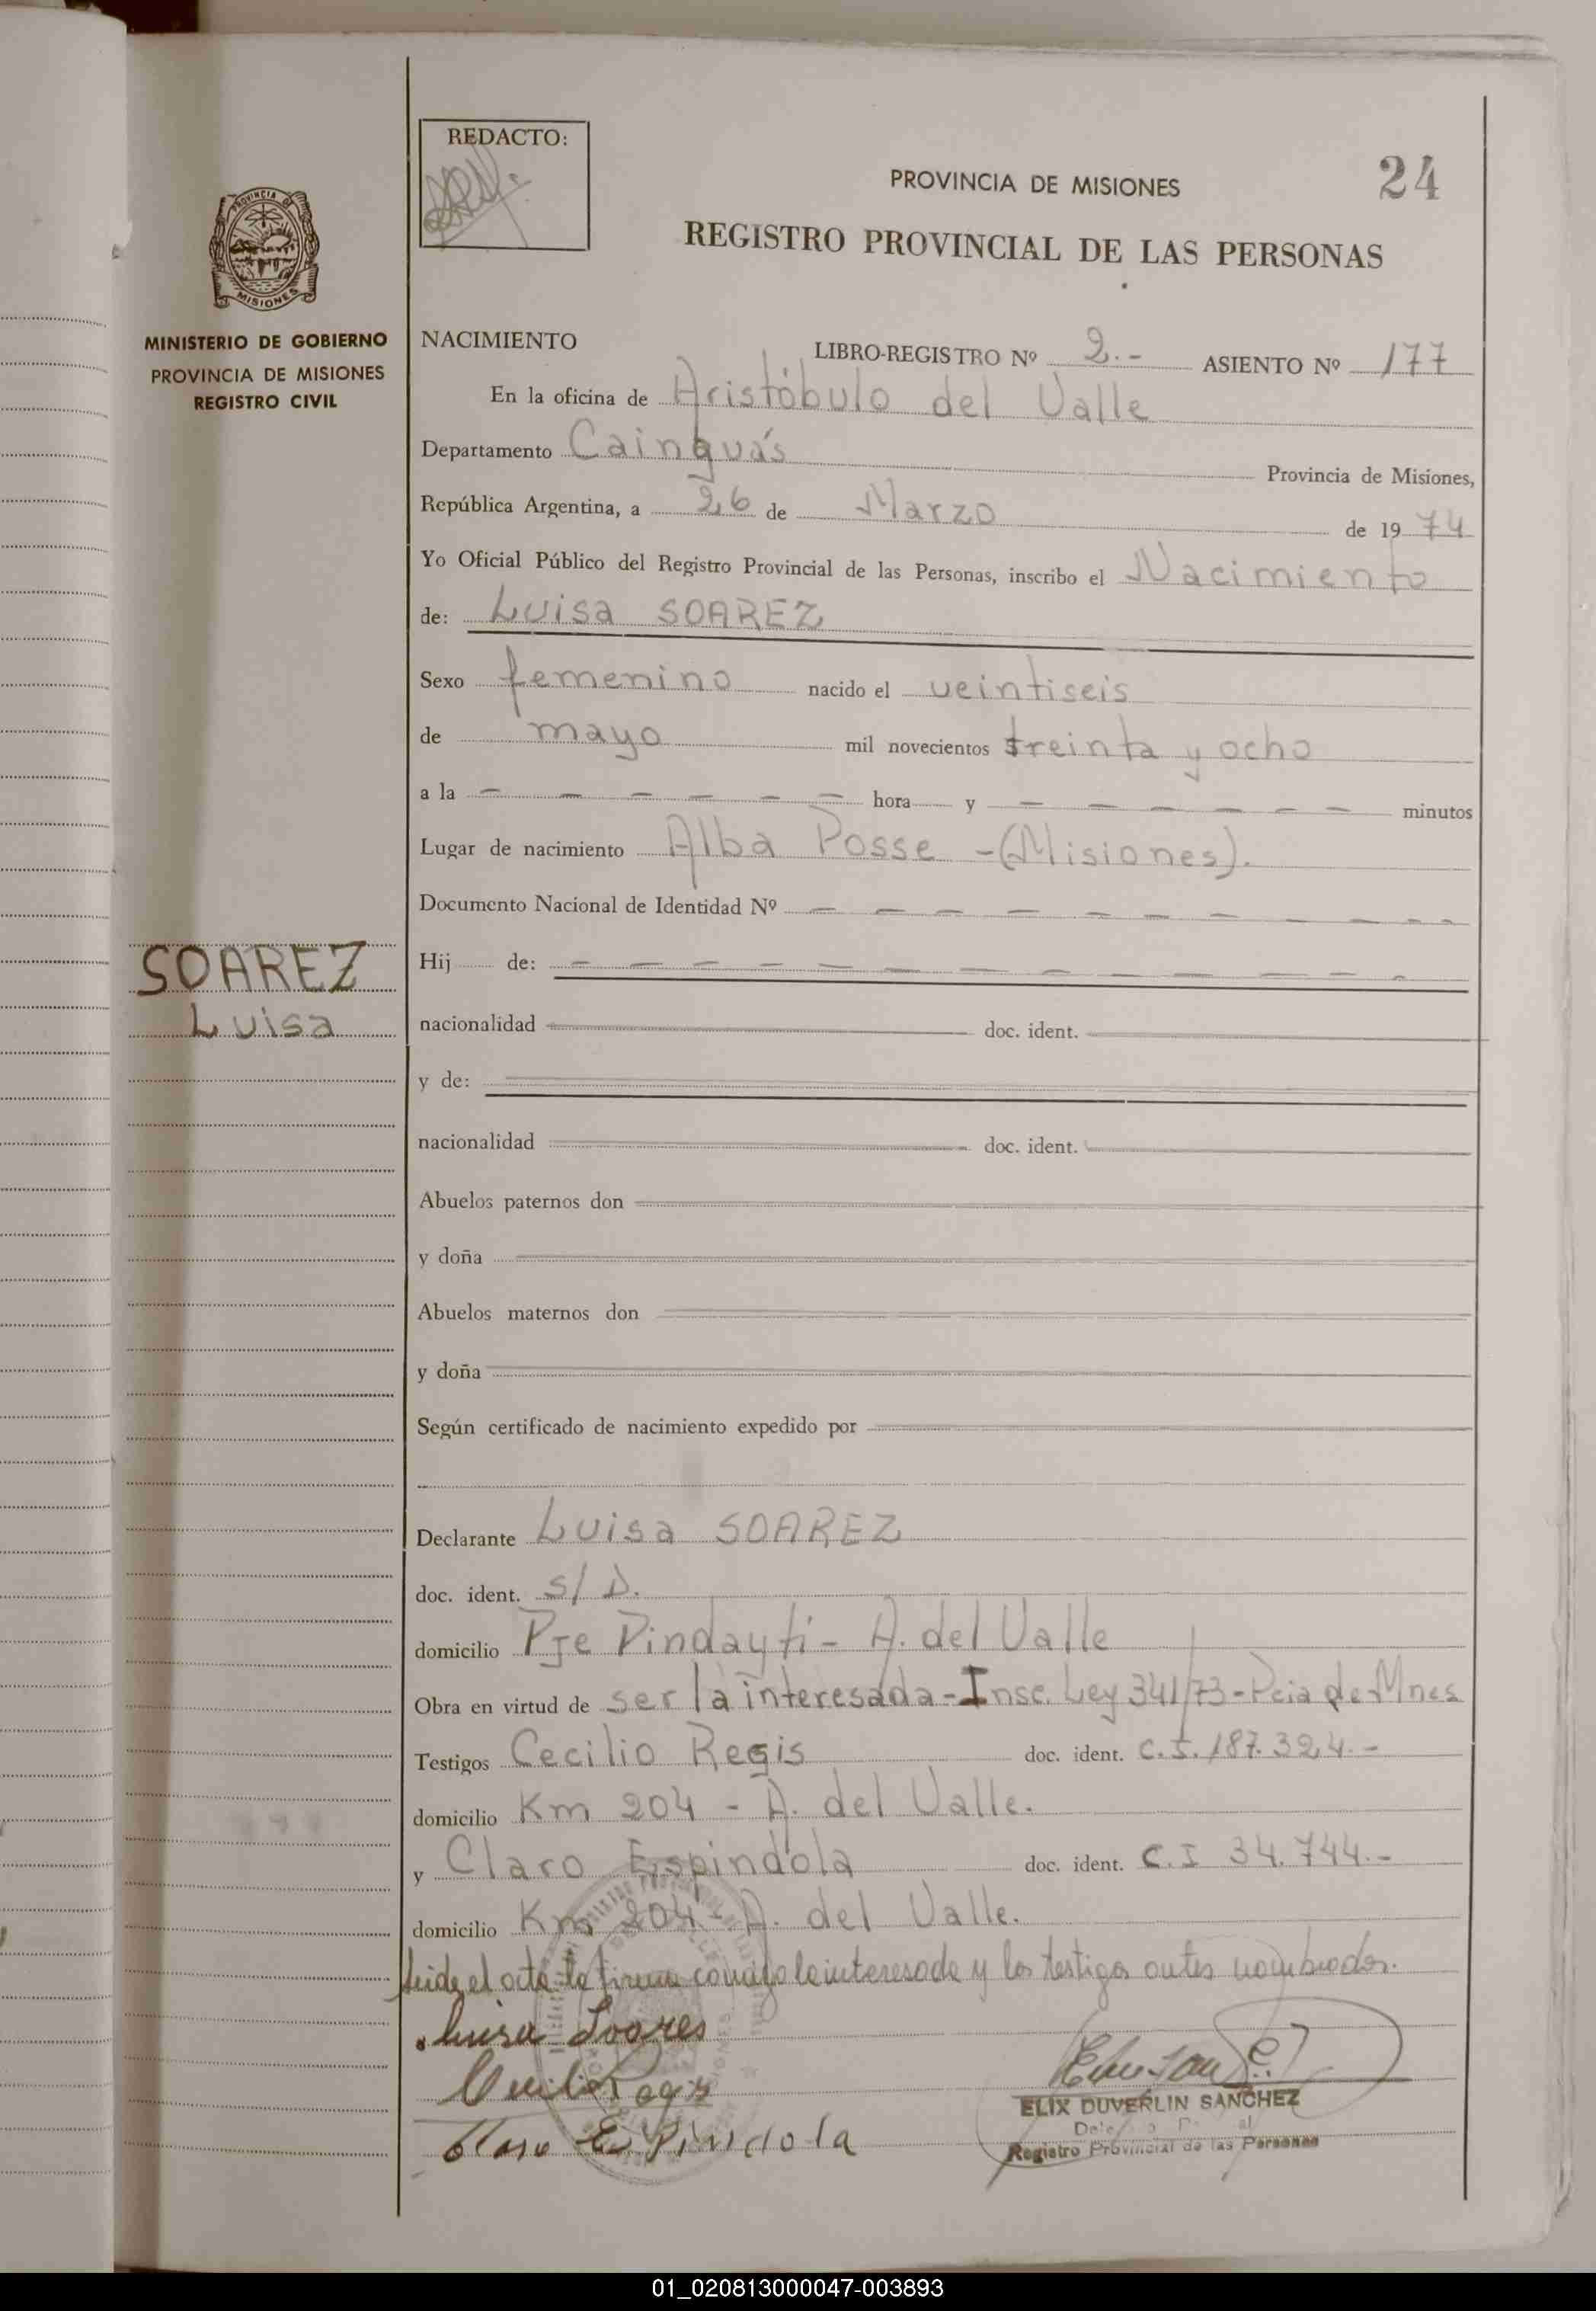 REDACTO:
PROVINCIA DE MISIONES
24
REGISTRO PROVINCIAL DE LAS PERSONAS
PROVINCIA DE
MISIONES
MINISTERIO DE GOBIERNO
PROVINCIA DE MISIONES
REGISTRO CIVIL
NACIMIENTO LIBRO-REGISTRO Nº 2.- ASIENTO Nº 177
En la oficina de Aristóbulo del Valle
Departamento Cainguás Provincia de Misiones,
República Argentina, a 26 de Marzo de 1974
Yo Oficial Público del Registro Provincial de las Personas, inscribo el Nacimiento
de: Luisa SOAREZ
Sexo femenino nacido el veintiseis
de mayo mil novecientos treinta y ocho
a la - - - - - - hora y - - - - - - minutos
Lugar de nacimiento Alba Posse -(Misiones).
Documento Nacional de Identidad Nº - - - - - - - - - -
SOAREZ
Luisa
Hij de: - - - - - - - - - - - - -
nacionalidad doc. ident.
y de:
nacionalidad doc. ident.
Abuelos paternos don
y doña
Abuelos maternos don
y doña
Según certificado de nacimiento expedido por
Declarante Luisa SOAREZ
doc. ident. S/D.
domicilio Pje Pindayti - A. del Valle
Obra en virtud de ser la interesada - Insc. Ley 341/73 - Pcia de Mnes
Testigos Cecilio Regis doc. ident. C.I. 187.324.-
domicilio Km 204 - A. del Valle.
y Claro Espindola doc. ident. C.I 34.744.-
domicilio Km 204 - A. del Valle.
leida el acta la firma conmigo la interesada y los testigos antes nombrados.
Luisa Soares
Cecilio Regis
Claro Espindola
ELIX DUVERLIN SANCHEZ
Registro Provincial de las Personas
01_020813000047-003893